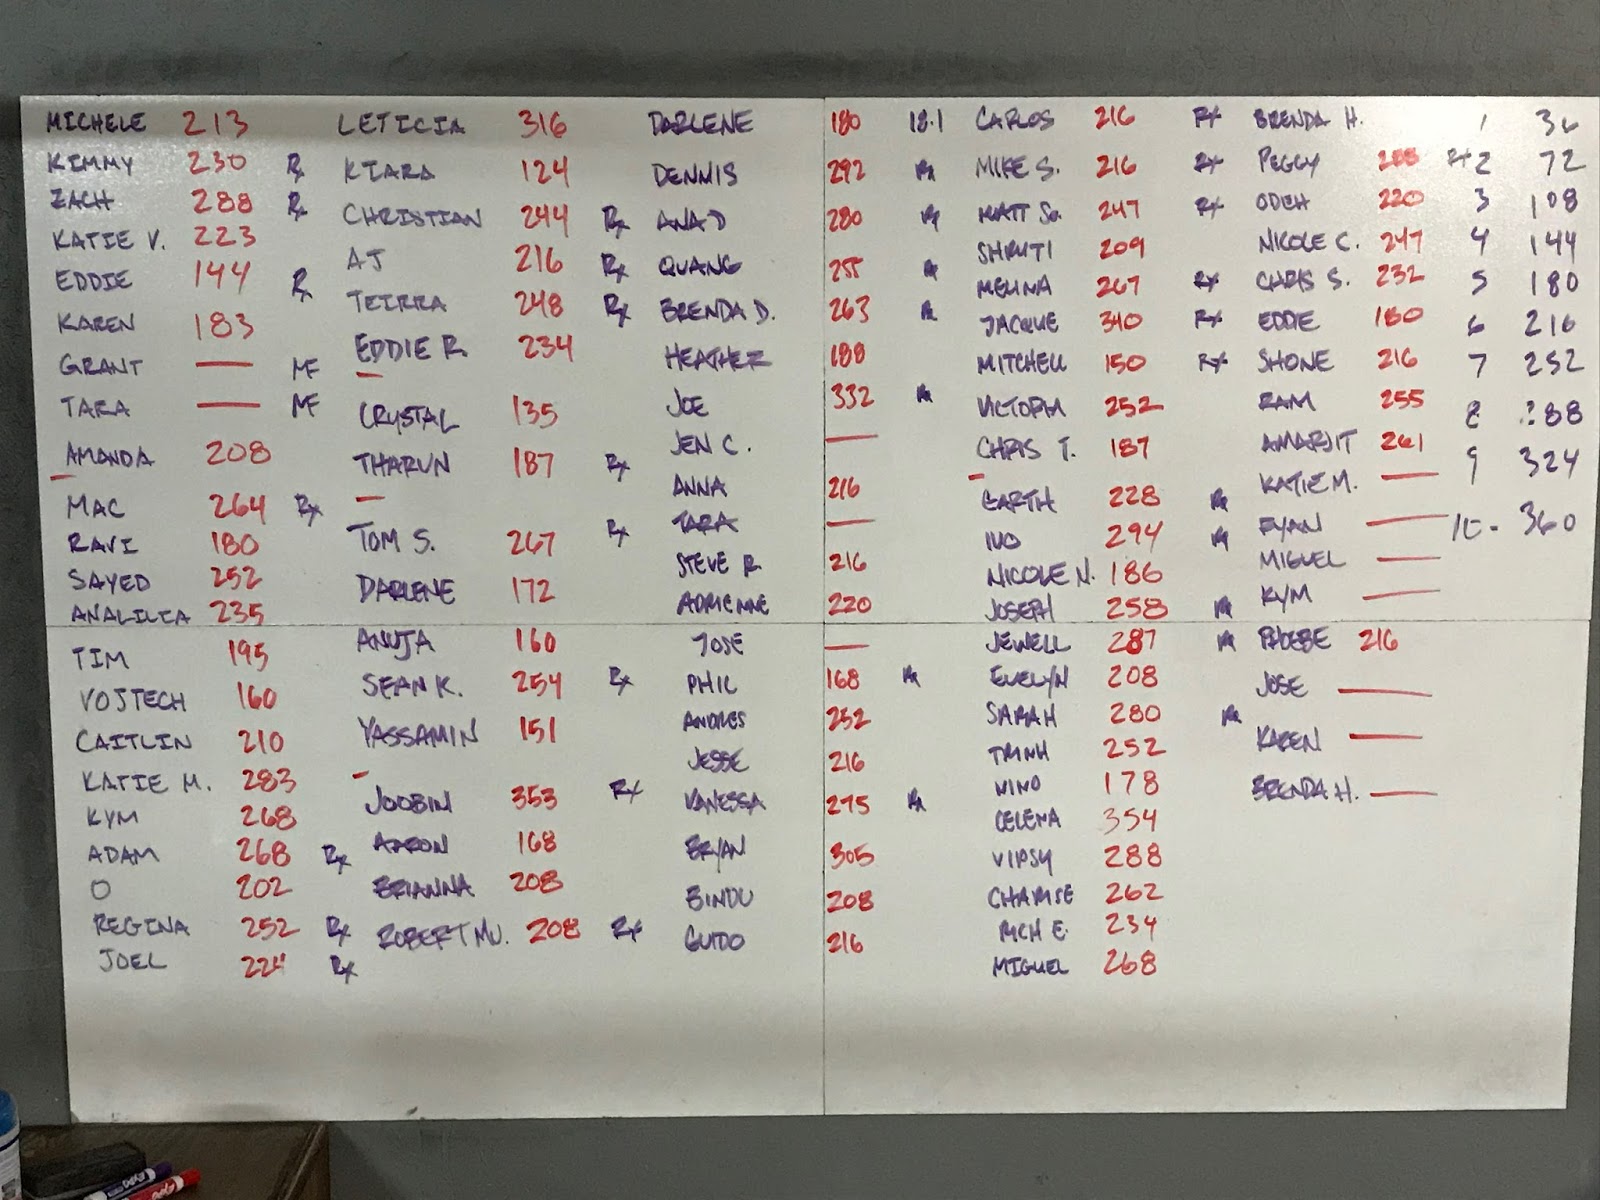 MICHELE 213
KIMMY 230 Rx
ZACH 288 Rx
KATIE V. 223
EDDIE 144 Rx
KAREN 183
GRANT — MF
TARA — MF
AMANDA 208
—
MAC 264 Rx
RAVI 180
SAYED 252
ANALILIA 235
TIM 195
VOJTECH 160
CAITLIN 210
KATIE M. 283
KYM 268
ADAM 268 Rx
O 202
REGINA 252 Rx
JOEL 224 Rx
LETICIA 316
KIARA 124
CHRISTIAN 244 Rx
AJ 216 Rx
TEIRRA 248 Rx
EDDIE R. 234
—
CRYSTAL 135
THARUN 187 Rx
—
TOM S. 267 Rx
DARLENE 172
ANUJA 160
SEAN K. 254 Rx
YASSAMIN 151
—
JOOBIN 353 Rx
AARON 168
BRIANNA 208
ROBERT MU. 208 Rx
DARLENE 180 18.1
DENNIS 292 Rx
ANA D 280 Rx
QUANG 255 Rx
BRENDA D. 263 Rx
HEATHER 188
JOE 332 Rx
JEN C. —
ANNA 216
TARA —
STEVE R 216
ADRIENNE 220
JOSE —
PHIL 168 Rx
ANDRES 252
JESSE 216
VANESSA 275 Rx
BRYAN 305
BINDU 208
GUIDO 216
CARLOS 216 Rx
MIKE S. 216 Rx
MATT So. 247 Rx
SHRUTI 209
MELINA 267 Rx
JACQUE 340 Rx
MITCHELL 150 Rx
VICTORIA 252
CHRIS T. 187
—
GARTH 228 Rx
IVO 294 Rx
NICOLE N. 186
JOSEPH 258 Rx
JEWELL 287 Rx
EVELYN 208
SARAH 280 Rx
TRINH 252
NINO 178
CELENA 354
VIPSY 288
CHARISE 262
RICH E. 234
MIGUEL 268
BRENDA H.
PEGGY 288 Rx
ODEH 220
NICOLE C. 247
CHRIS S. 232
EDDIE 180
SHONE 216
RAM 255
AMARJIT 261
KATIE M. —
RYAN —
MIGUEL —
KYM —
PHOEBE 216
JOSE —
KAREN —
BRENDA H. —
1 36
2 72
3 108
4 144
5 180
6 216
7 252
8 288
9 324
10 - 360